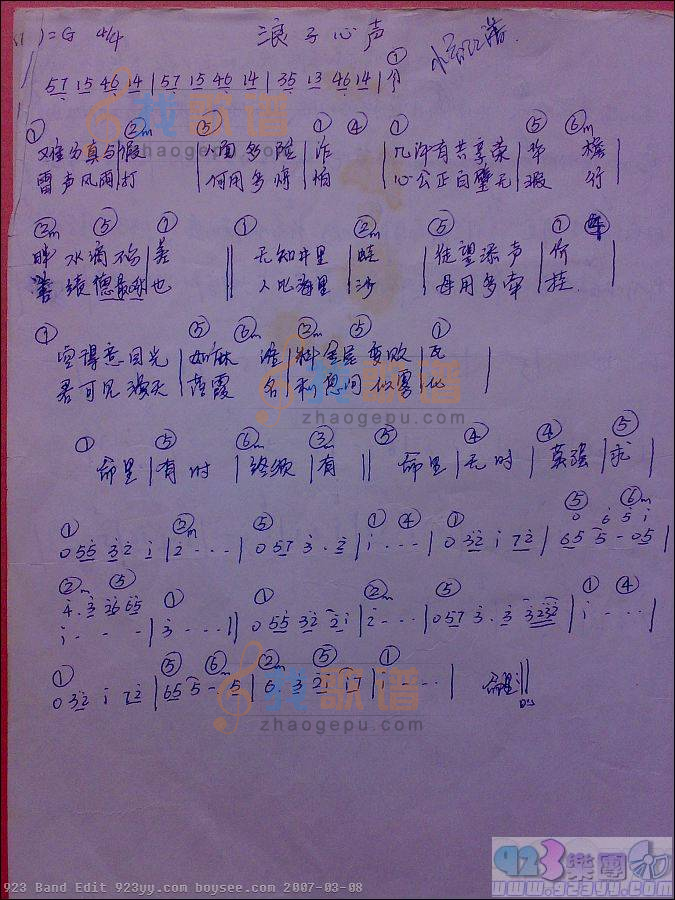 1=G 4/4 浪子心声
57 15 46 14 | 57 15 46 14 | 35 13 46 14 | ①
① ②m ⑤ ① ④ ① ⑤ ⑥m
难分真与假 人面多险诈 几许有共享荣华 檐
雷声风雨打 何用多惊怕 心公正白璧无瑕 行
②m ⑤ ① ① ②m ⑤ ①
畔水滴不 无知井里 蛙 徒望添声 价
善绩德最 也 人比海里 沙 毋用多牵 挂
① ⑤ ⑥m ②m ⑤ ①
空得意目光 如麻 谁 料金屋变败 瓦
君可见 天 落霞 名 利 间 似雾 化
① ⑤ ⑥m ③m ⑤ ④ ④ ⑤
命里 | 有时 | 终须 | 有 || 命里 | 无时 | 莫强 | 求 |
① ②m ⑤ ① ④ ① ⑤ ⑥m
0 55 32 1 | 2 - - - | 0 57 3 . 2 | 1 - - - | 0 32 1 72 | 65 5 - 05 |
②m ⑤ ① ① ②m ⑤ ① ④
1 - - - | 3 - - - || 0 55 32 21 | 2 - - - | 057 3 . 3 3232 | 1 - - - |
① ⑤ ⑥m ②m ⑤ ①
0 32 1 72 | 65 5 - - 5 | 6 . 3 21 17 | 1 - - - | 命里 ||
找歌谱
zhaogepu.com
找歌谱
zhaogepu.com
找歌谱
zhaogepu.com
923 Band Edit 923yy.com boysee.com 2007-03-08
923樂團
www.923yy.com